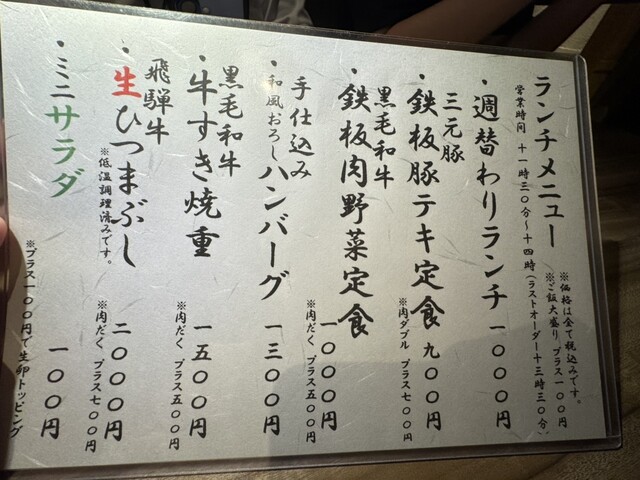 ランチメニュー
※価格は全て税込みです。
※ご飯大盛り プラス一〇〇円
営業時間 十一時三〇分〜十四時(ラストオーダー十三時三〇分)
・週替わりランチ 一〇〇〇円
三元豚
・鉄板豚テキ定食 九〇〇円
※肉ダブル プラス七〇〇円
黒毛和牛
・鉄板肉野菜定食 一〇〇〇円
※肉だく プラス五〇〇円
手仕込み
・和風おろしハンバーグ 一三〇〇円
黒毛和牛
・牛すき焼重 一五〇〇円
※肉だく プラス五〇〇円
飛騨牛
・生ひつまぶし 二〇〇〇円
※低温調理済みです。
※肉だく プラス七〇〇円
・ミニサラダ 一〇〇円
※プラス一〇〇円で生卵トッピング